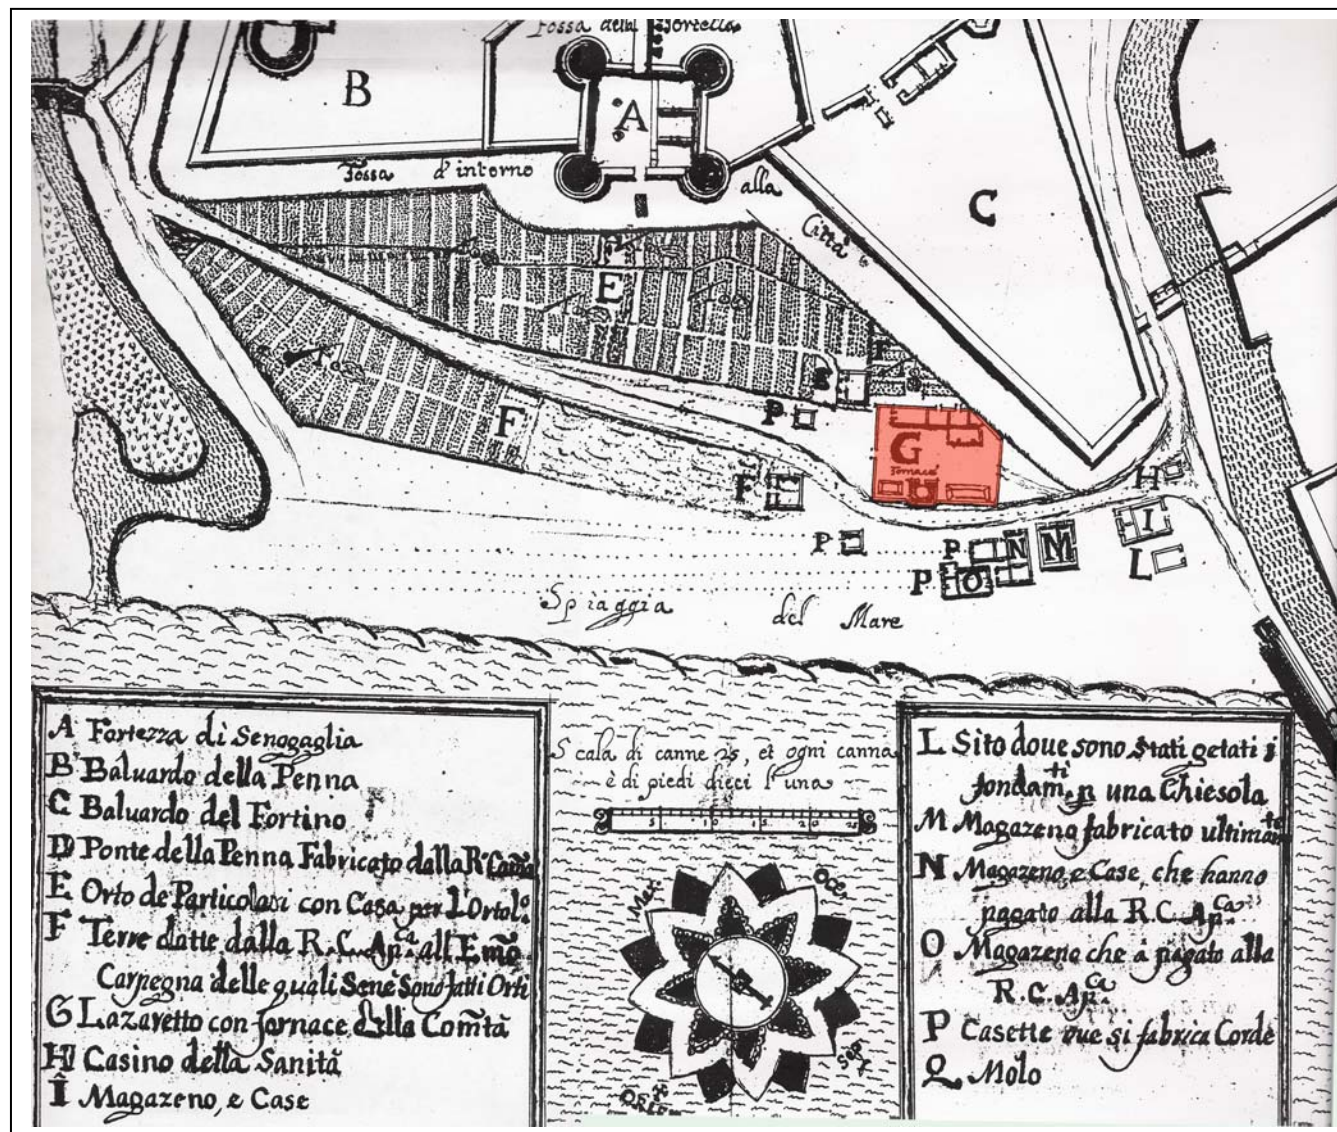 Fossa della Portella
B
A
Fossa d'intorno alla Città
C
E
F
P
G
fornace
F
H
I
L
P
P
N
M
P
O
Spiaggia del Mare
A Fortezza di Senogaglia
B Baluardo della Penna
C Baluardo del Fortino
D Ponte della Penna Fabricato dalla
E Orto de Particolari con Casa per L'Ortol.º
F Terre datte dalla R.C.Ap.ca all Emo
Carpegna delle quali Sene Sono fatti Orti
G Lazaretto con fornace della Comtà
H Casino della Sanità
I Magazeno, e Case
Scala di canne 25, et ogni canna
è di piedi dieci l'una
5 10 15 20 25
Mar.
Ocen
Sept
L Sito doue sono stati getati i
fondam.ti una Chiesola
M Magazeno fabricato ultimam.te
N Magazeno e Case, che hanno
pagato alla R.C.Ap.ca
O Magazeno che à pagato alla
R.C.Ap.ca
P Casette oue si fabrica Corde
Q Molo